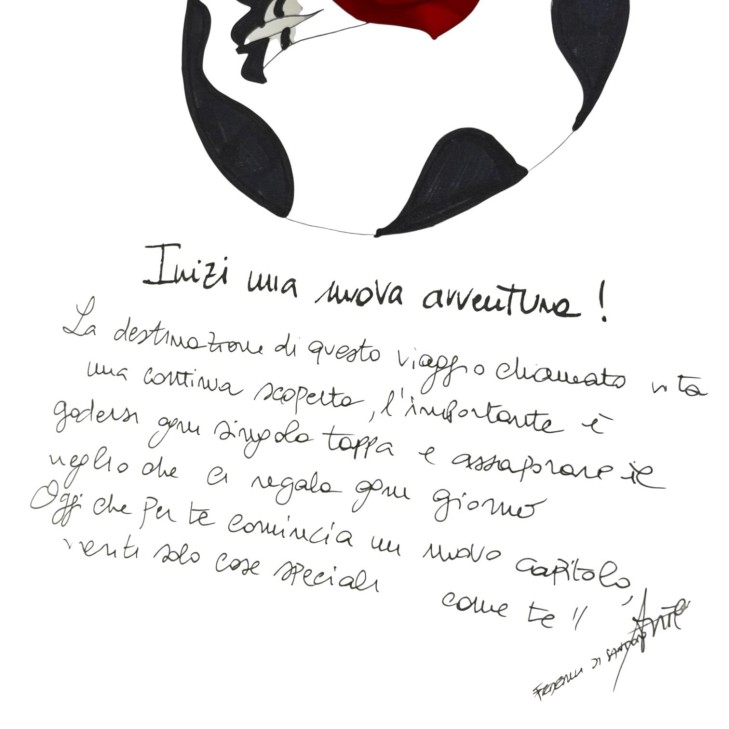 Inizi una nuova avventura!
La destinazione di questo viaggio chiamato vita
una continua scoperta, l'importante è
godersi ogni singola tappa e assaporare il
meglio che ci regala ogni giorno
Oggi che per te comincia un nuovo capitolo,
venti solo cose speciali come te!!